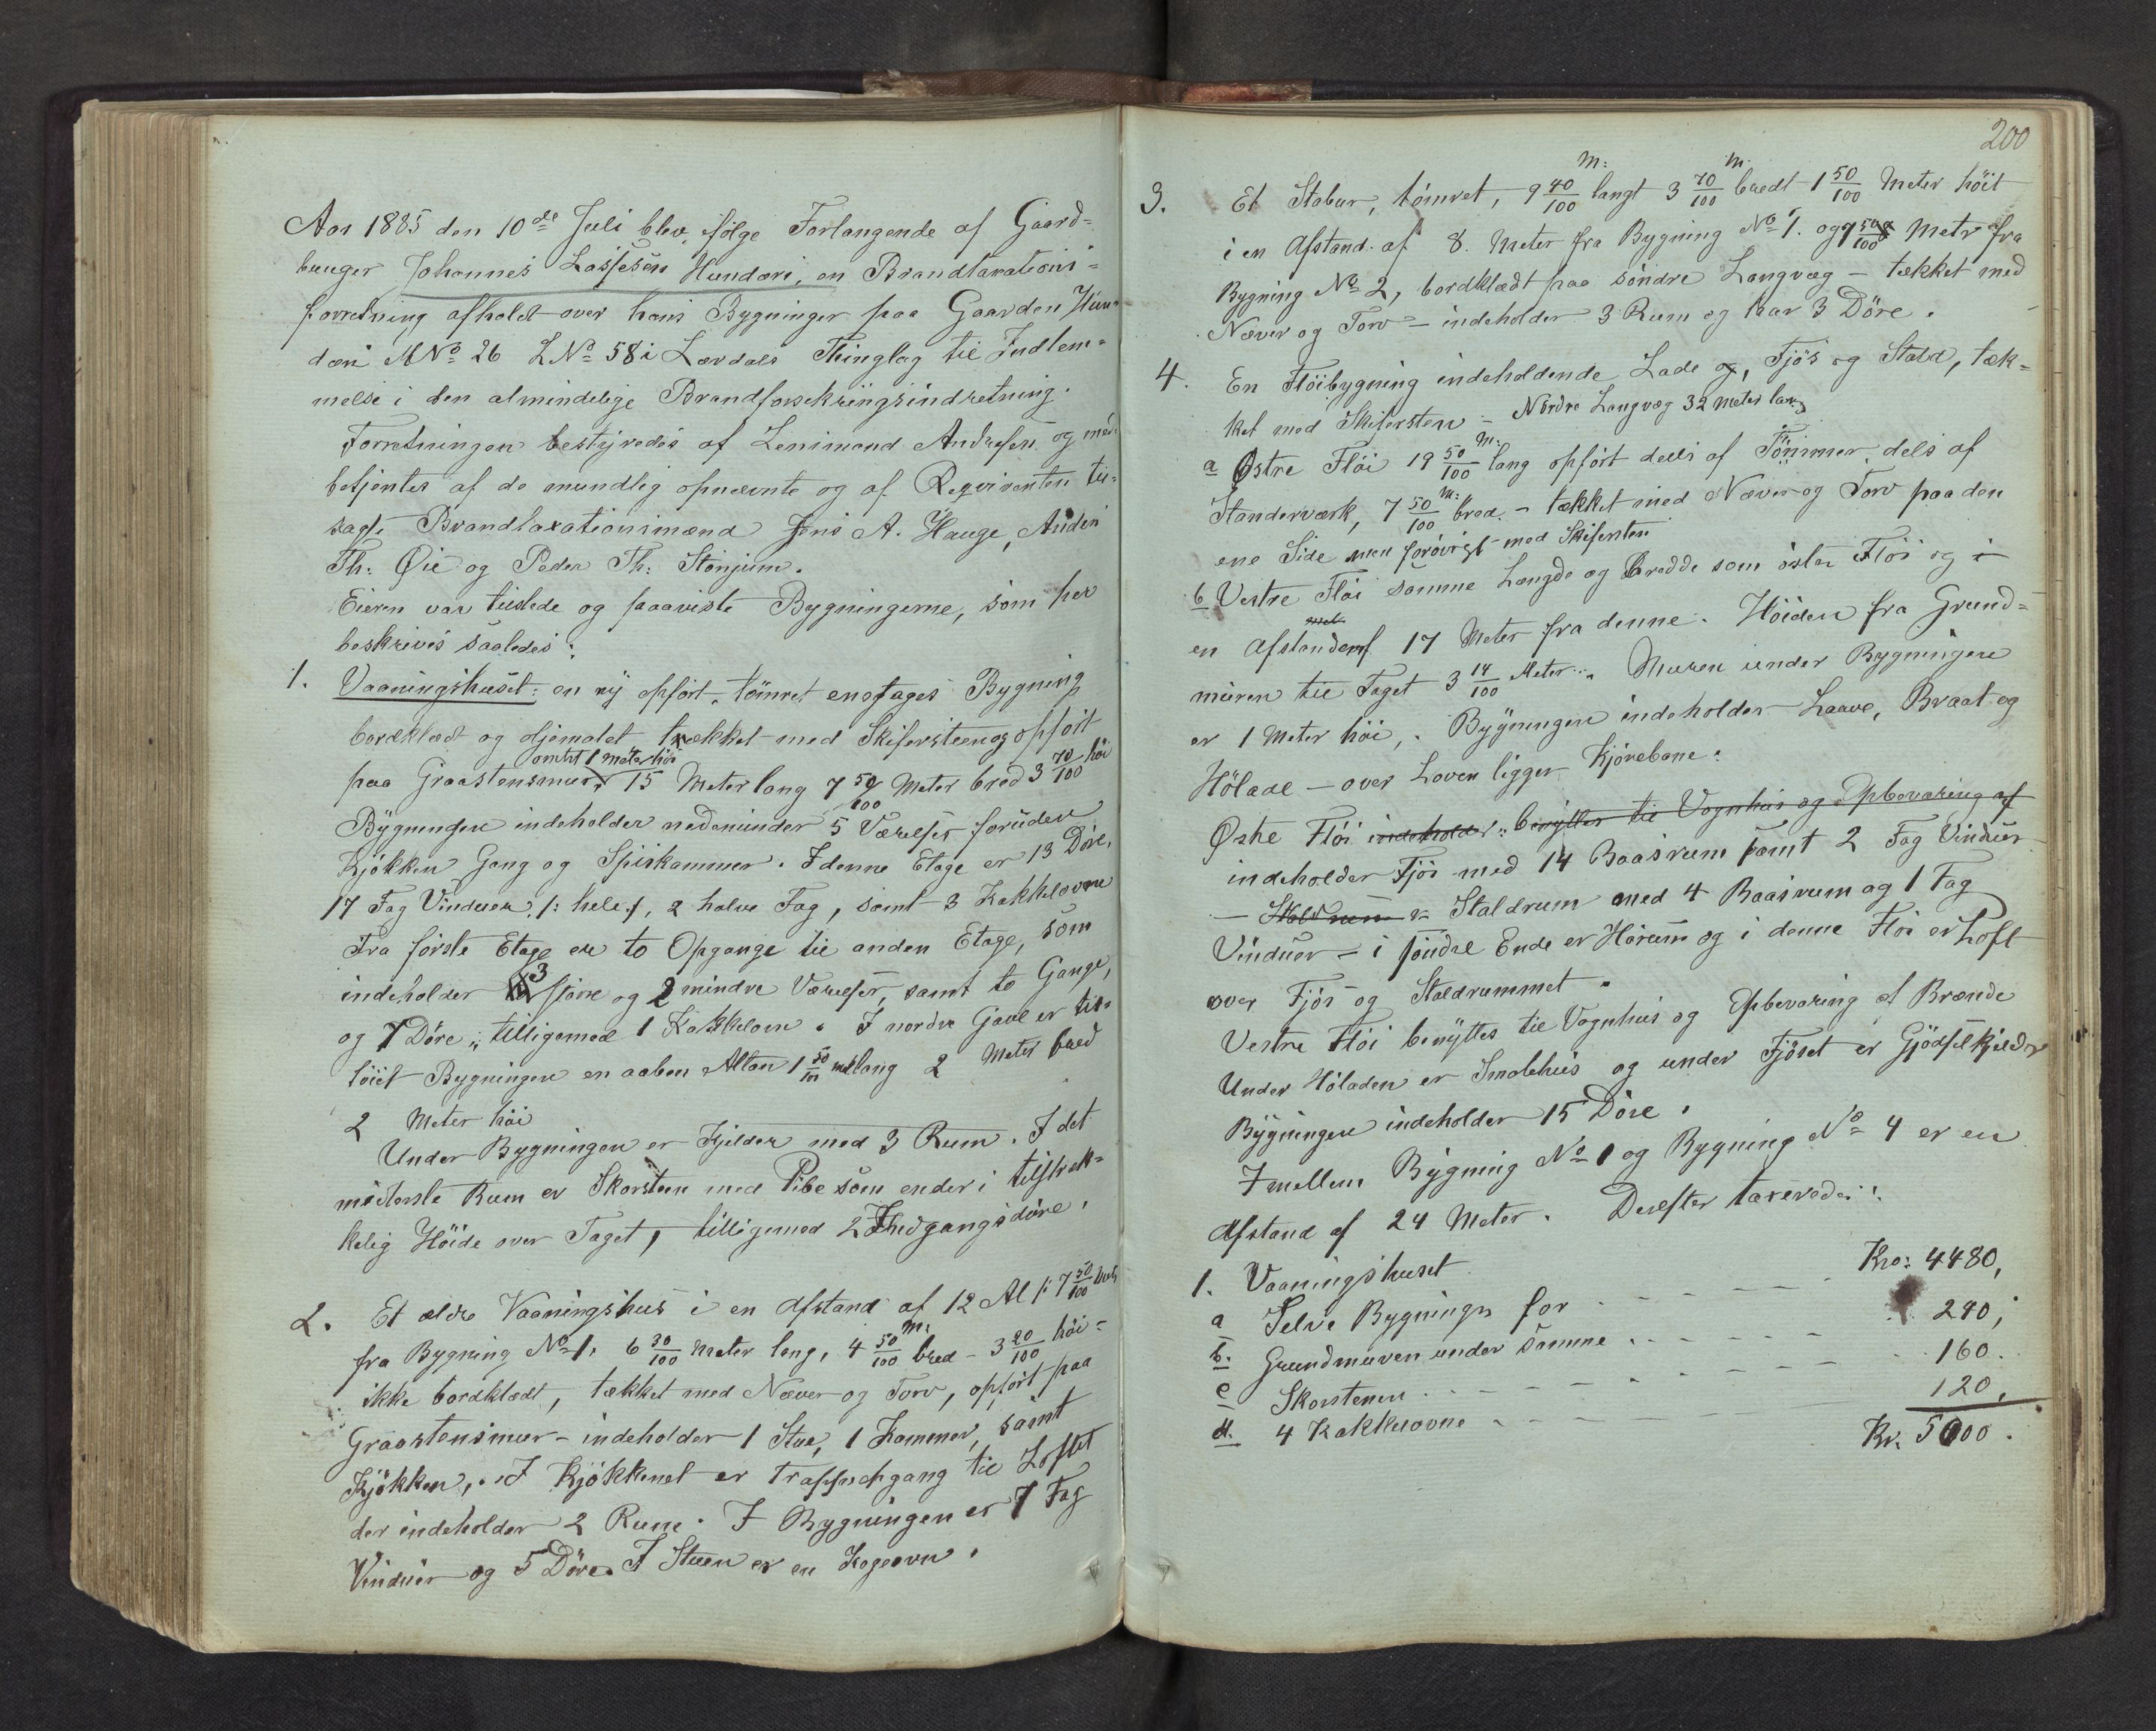 Aar 1885 den 10de Juli blev, ifølge Forlangende af Gaard-
bruger Johannes Lassesen Hunderi, en Brandtaxations-
forretning afholdt over hans Bygninger paa Gaarden Hun-
deri MNo 26 LNo 58 i Lærdals Thinglag til Indlem-
melse i den almindelige Brandforsikringsindretning.
Forretningen bestyredes af Lensmand Andresen og med-
betjentes af de mundlig opnævnte og af Reqvirenten til-
sagte Brandtaxationsmænd Jens A. Hauge, Anders
Th. Øie og Peder Th. Stönjum.
Eieren var tilstede og paaviste Bygningerne, som her
beskrives saaledes:
1. Vaaningshuset: en ny opført, tømret enetages Bygning
bordklædt og oljemalet tækket med Skifersteen og opført
omtrt 1 meter høi
paa Graastensmur, 15 Meter lang 7 50/100 Meter bred 3 70/100 høi
Bygningen indeholder nedenunder 5 Værelser foruden
Kjøkken Gang og Spiskammer. I denne Etage er 13 Döre,
17 Fag Vinduer /: hele :/, 2 halve Fag, samt 3 Kakkelovne
Fra første Etage er to Opgange til anden Etage, som
indeholder 3 større og 2 mindre Værelser, samt to Gange,
og 7 Döre, tilligemed 1 Kakkelovn. I nordre Gavl er til-
føiet Bygningen en aaben Altan 1 50/100 met lang 2 Meter bred
2 Meter høi
Under Bygningen er Kjelder med 3 Rum. I det
midterste Rum er Skorsteen med Pibe som ender i tilstræk-
kelig Höide over Taget, tilligemed 2 Indgangsdöre.
2. Et ældre Vaaningshus i en Afstand af 12 Al /: 7 50/100 Met
fra Bygning No 1, 6 30/100 Meter lang, 4 50/100 M: bred - 3 20/100 høi -
ikke bordklædt, tækket med Næver og Torv, opført paa
Graastensmur - indeholder 1 Stue, 1 Kammer, samt
Kjøkken,. I Kjøkkenet er Trappeopgang til Loftet
der indeholder 2 Rum. I Bygningen er 7 Fag
Vinduer og 5 Döre. I Stuen er en Kogeovn.
200
3. Et Stabur, tømret, 9 40/100 M: langt 3 70/100 M. bredt 1 50/100 Meter höit
i en Afstand af 8. Meter fra Bygning No 1. og 7 50/100 Metr fra
Bygning No 2, bordklædt paa söndre Langvæg - tækket med
Næver og Torv - indeholder 3 Rum og har 3 Döre.
4. En Flöibygning indeholdende Lade og, Fjös og Stald, tæk-
ket med Skifersten - Nordre Langvæg 32 Meter lang
a Østre Flöi 19 50/100 M: lang opført dels af Tömmer dels af
Standerværk, 7 50/100 M: bred. - tækket med Næver og Torv paa den
ene Side men forövrigt med Skifersten
b Vestre Flöi samme Længde og Bredde som östre Flöi og i
en Afstand af 17 Meter fra denne. Höiden fra Grund-
muren til Taget 3 14/100 Meter. Muren under Bygningen
er 1 Meter höi,. Bygningen indeholder Laave, Braat og
Hölade - over Loven ligger Kjörebane.
Østre Flöi indeholder: benyttes til Vognhus og Opbevaring af
indeholder Fjös med 14 Baasrum samt 2 Fag Vinduer
- Staldrum Staldrum med 4 Baasrum og 1 Fag
Vinduer - i söndre Ende er Hörum og i denne Flöi er Loft
over Fjös og Staldrummet.
Vestre Flöi benyttes til Vognhus og Opbevaring af Brænde
Under Höladen er Smalehus og under Fjöset er Gjödselkjelder
Bygningen indeholder 15 Döre.
Imellem Bygning No 1 og Bygning No 4 er en
Afstand af 24 Meter. Derefter taxeredes:
1. Vaaningshuset
a Selve Bygningen for - - - Kro: 4480,
b. Grundmuren under samme - - - 240,
c Skorstenen - - - 160.
d. 4 Kakkelovne - - - 120.
Kr. 5000.